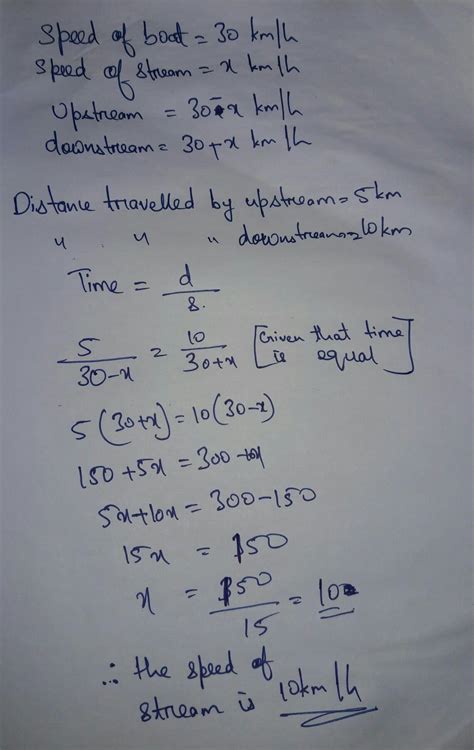 Speed of boat = 30 km/h
Speed of stream = x km/h
Upstream = 30-x km/h
downstream = 30+x km/h
Distance travelled by upstream = 5km
" " " downstream = 10km
Time = d/s.
5/30-x = 10/30+x [Given that time is equal]
5(30+x) = 10(30-x)
150+5x = 300-10x
5x+10x = 300-150
15x = 150
x = 150/15 = 10
∴ the speed of
stream is 10km/h